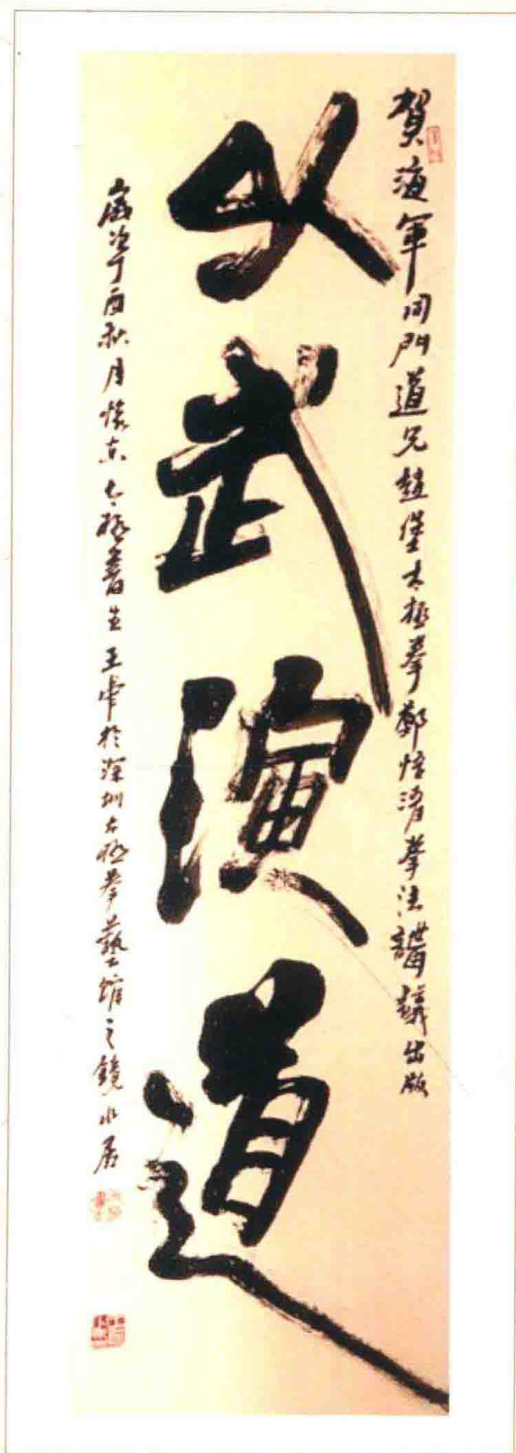 賀海軍同門道兄趙堡太極拳鄭悟清拳法講義出版
以武演道
歲次丁酉秋月懷京太極書生王常於深圳太極拳藝館之鏡水居